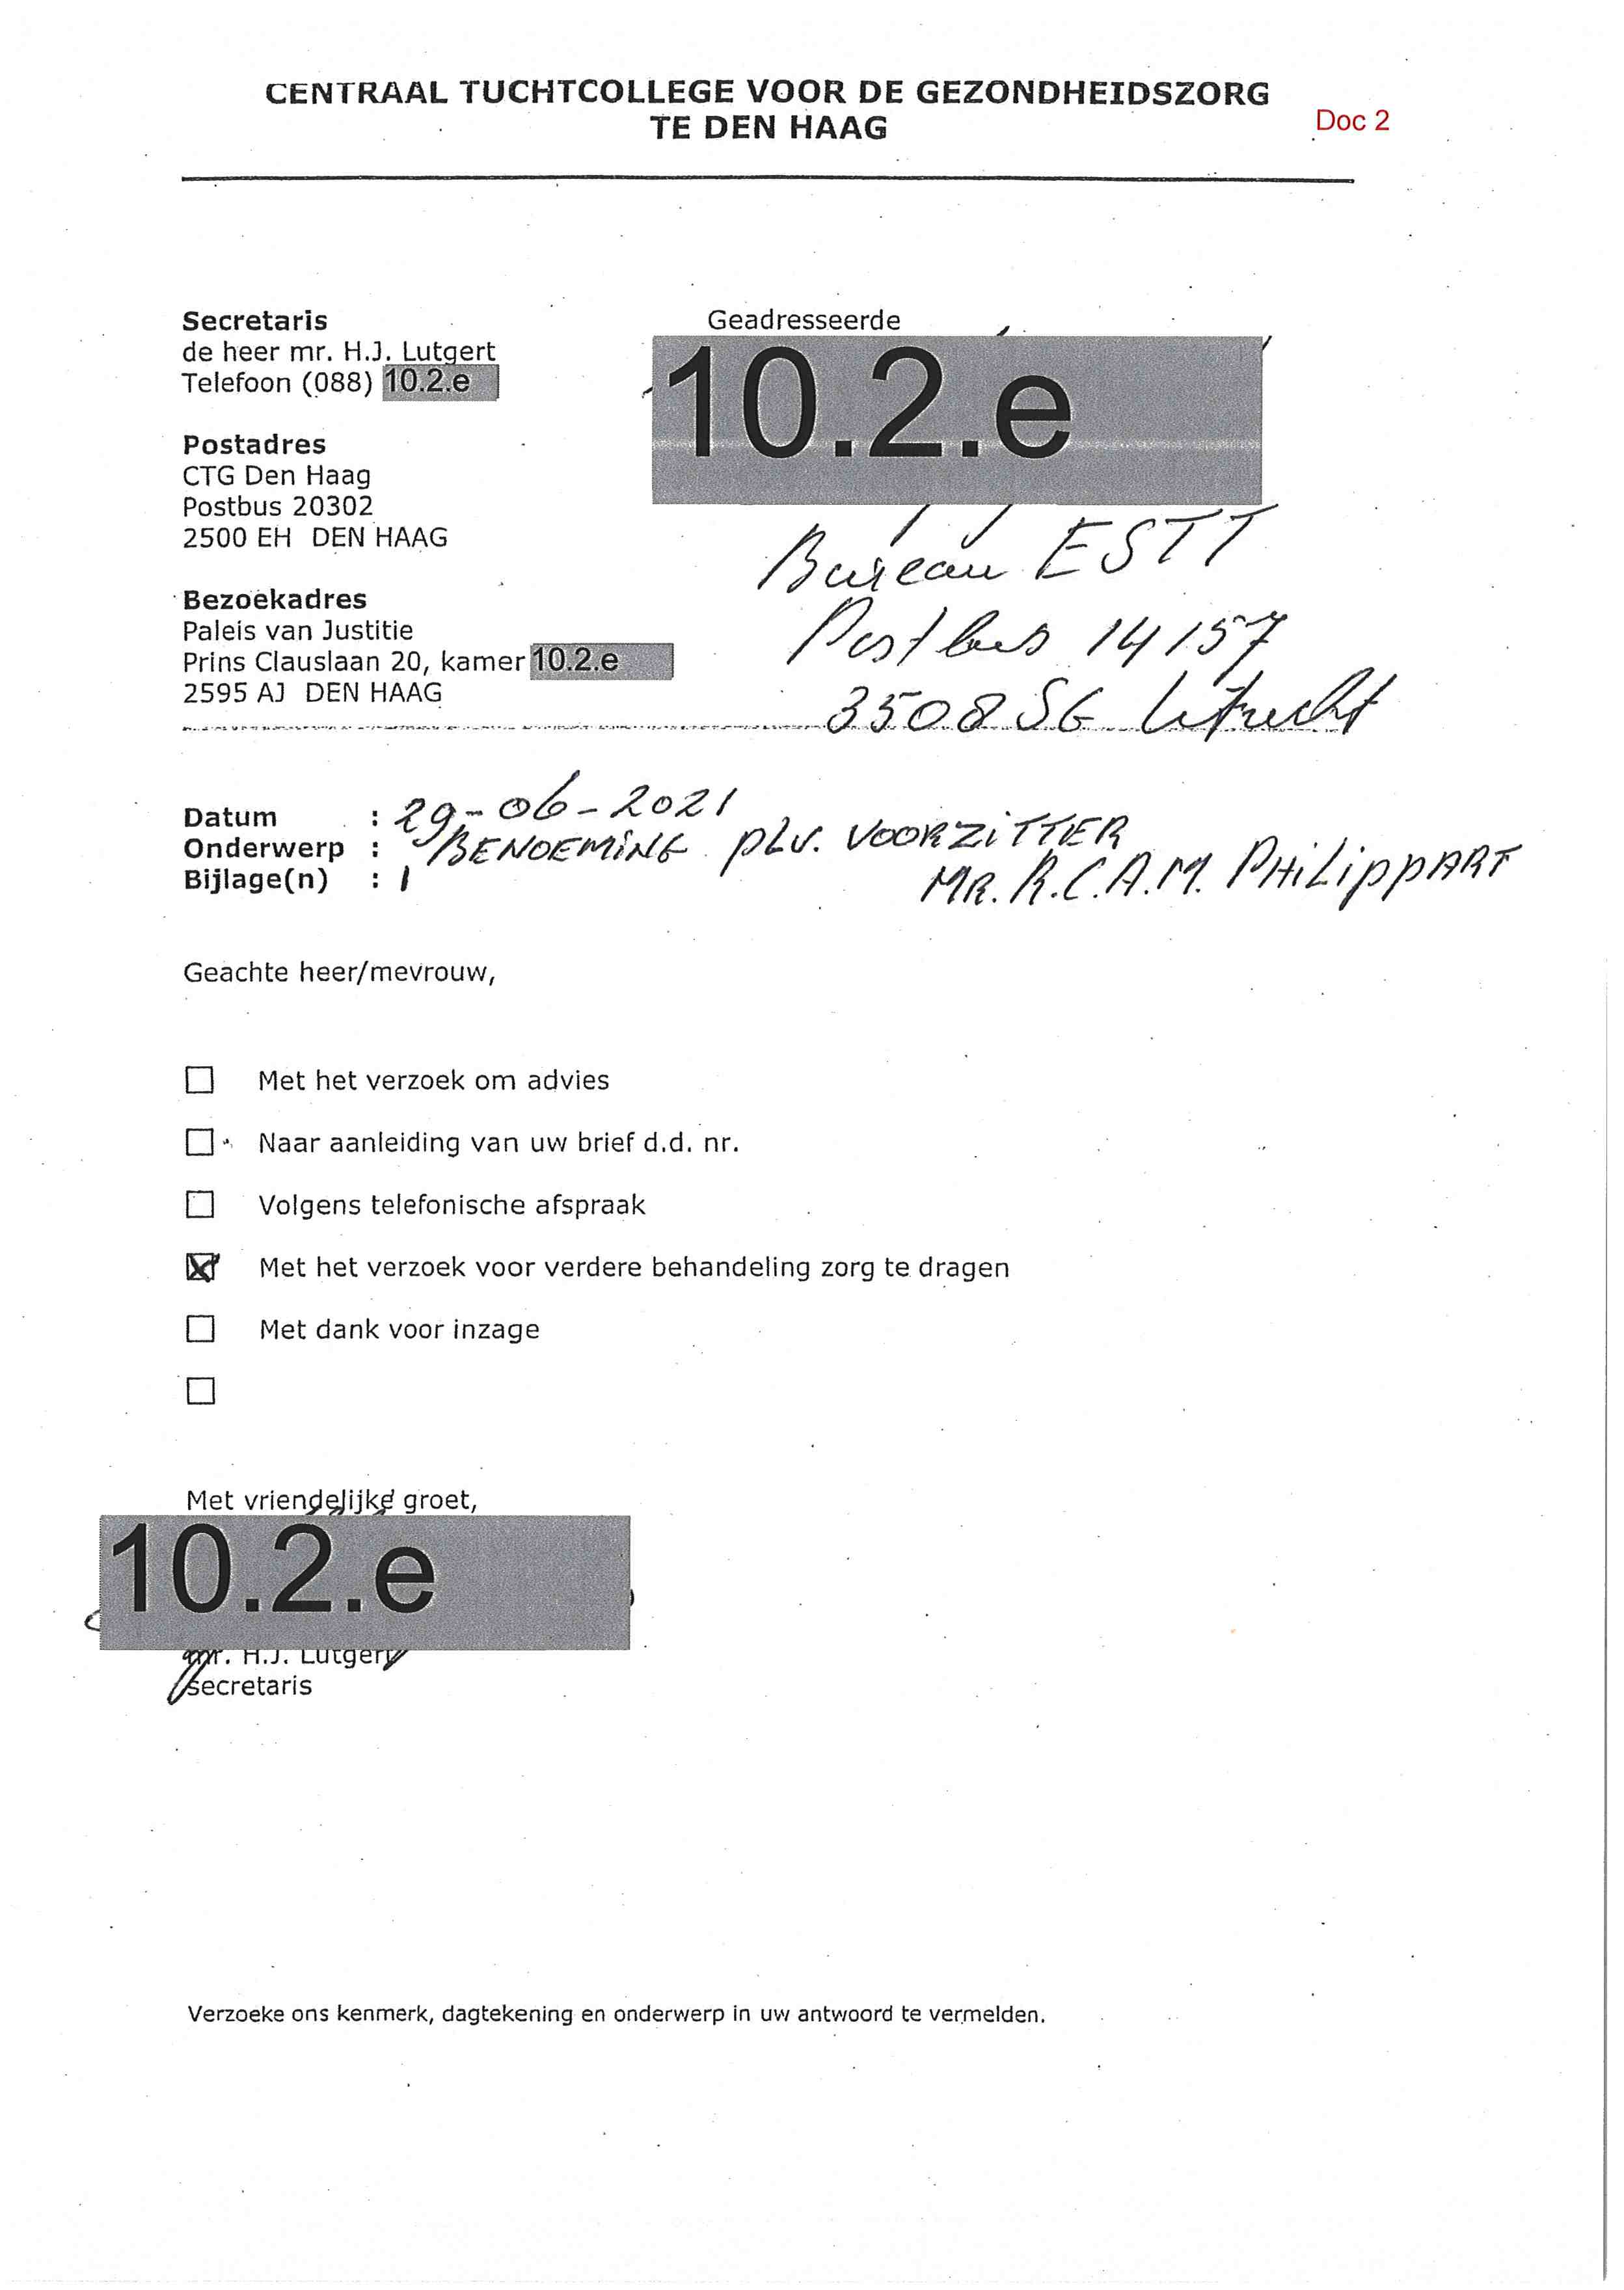 CENTRAAL TUCHTCOLLEGE VOOR DE GEZONDHEIDSZORG
TE DEN HAAG
Doc 2
Secretaris
de heer mr. H.J. Lutgert
Telefoon (088) 10.2.e
Postadres
CTG Den Haag
Postbus 20302
2500 EH DEN HAAG
Bezoekadres
Paleis van Justitie
Prins Clauslaan 20, kamer 10.2.e
2595 AJ DEN HAAG
Geadresseerde
10.2.e
Bureau ESTT
Postbus 14157
3508 SG Utrecht
Datum : 29-06-2021
Onderwerp : BENOEMING plv. VOORZITTER
MR. R.C.A.M. PHILIPPART
Bijlage(n) : 1
Geachte heer/mevrouw,
Met het verzoek om advies
Naar aanleiding van uw brief d.d. nr.
Volgens telefonische afspraak
Met het verzoek voor verdere behandeling zorg te dragen
Met dank voor inzage
Met vriendelijke groet,
10.2.e
mr. H.J. Lutgert
secretaris
Verzoeke ons kenmerk, dagtekening en onderwerp in uw antwoord te vermelden.